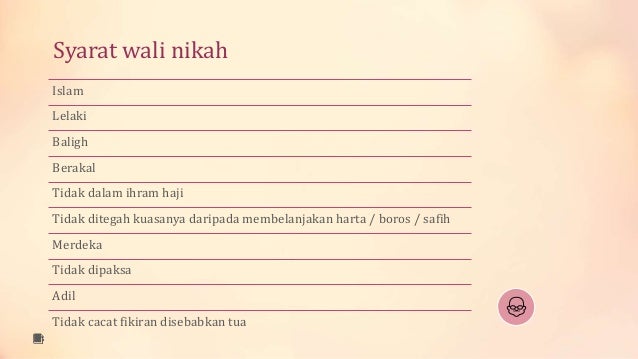 Syarat wali nikah
Islam
Lelaki
Baligh
Berakal
Tidak dalam ihram haji
Tidak ditegah kuasanya daripada membelanjakan harta / boros / safih
Merdeka
Tidak dipaksa
Adil
Tidak cacat fikiran disebabkan tua